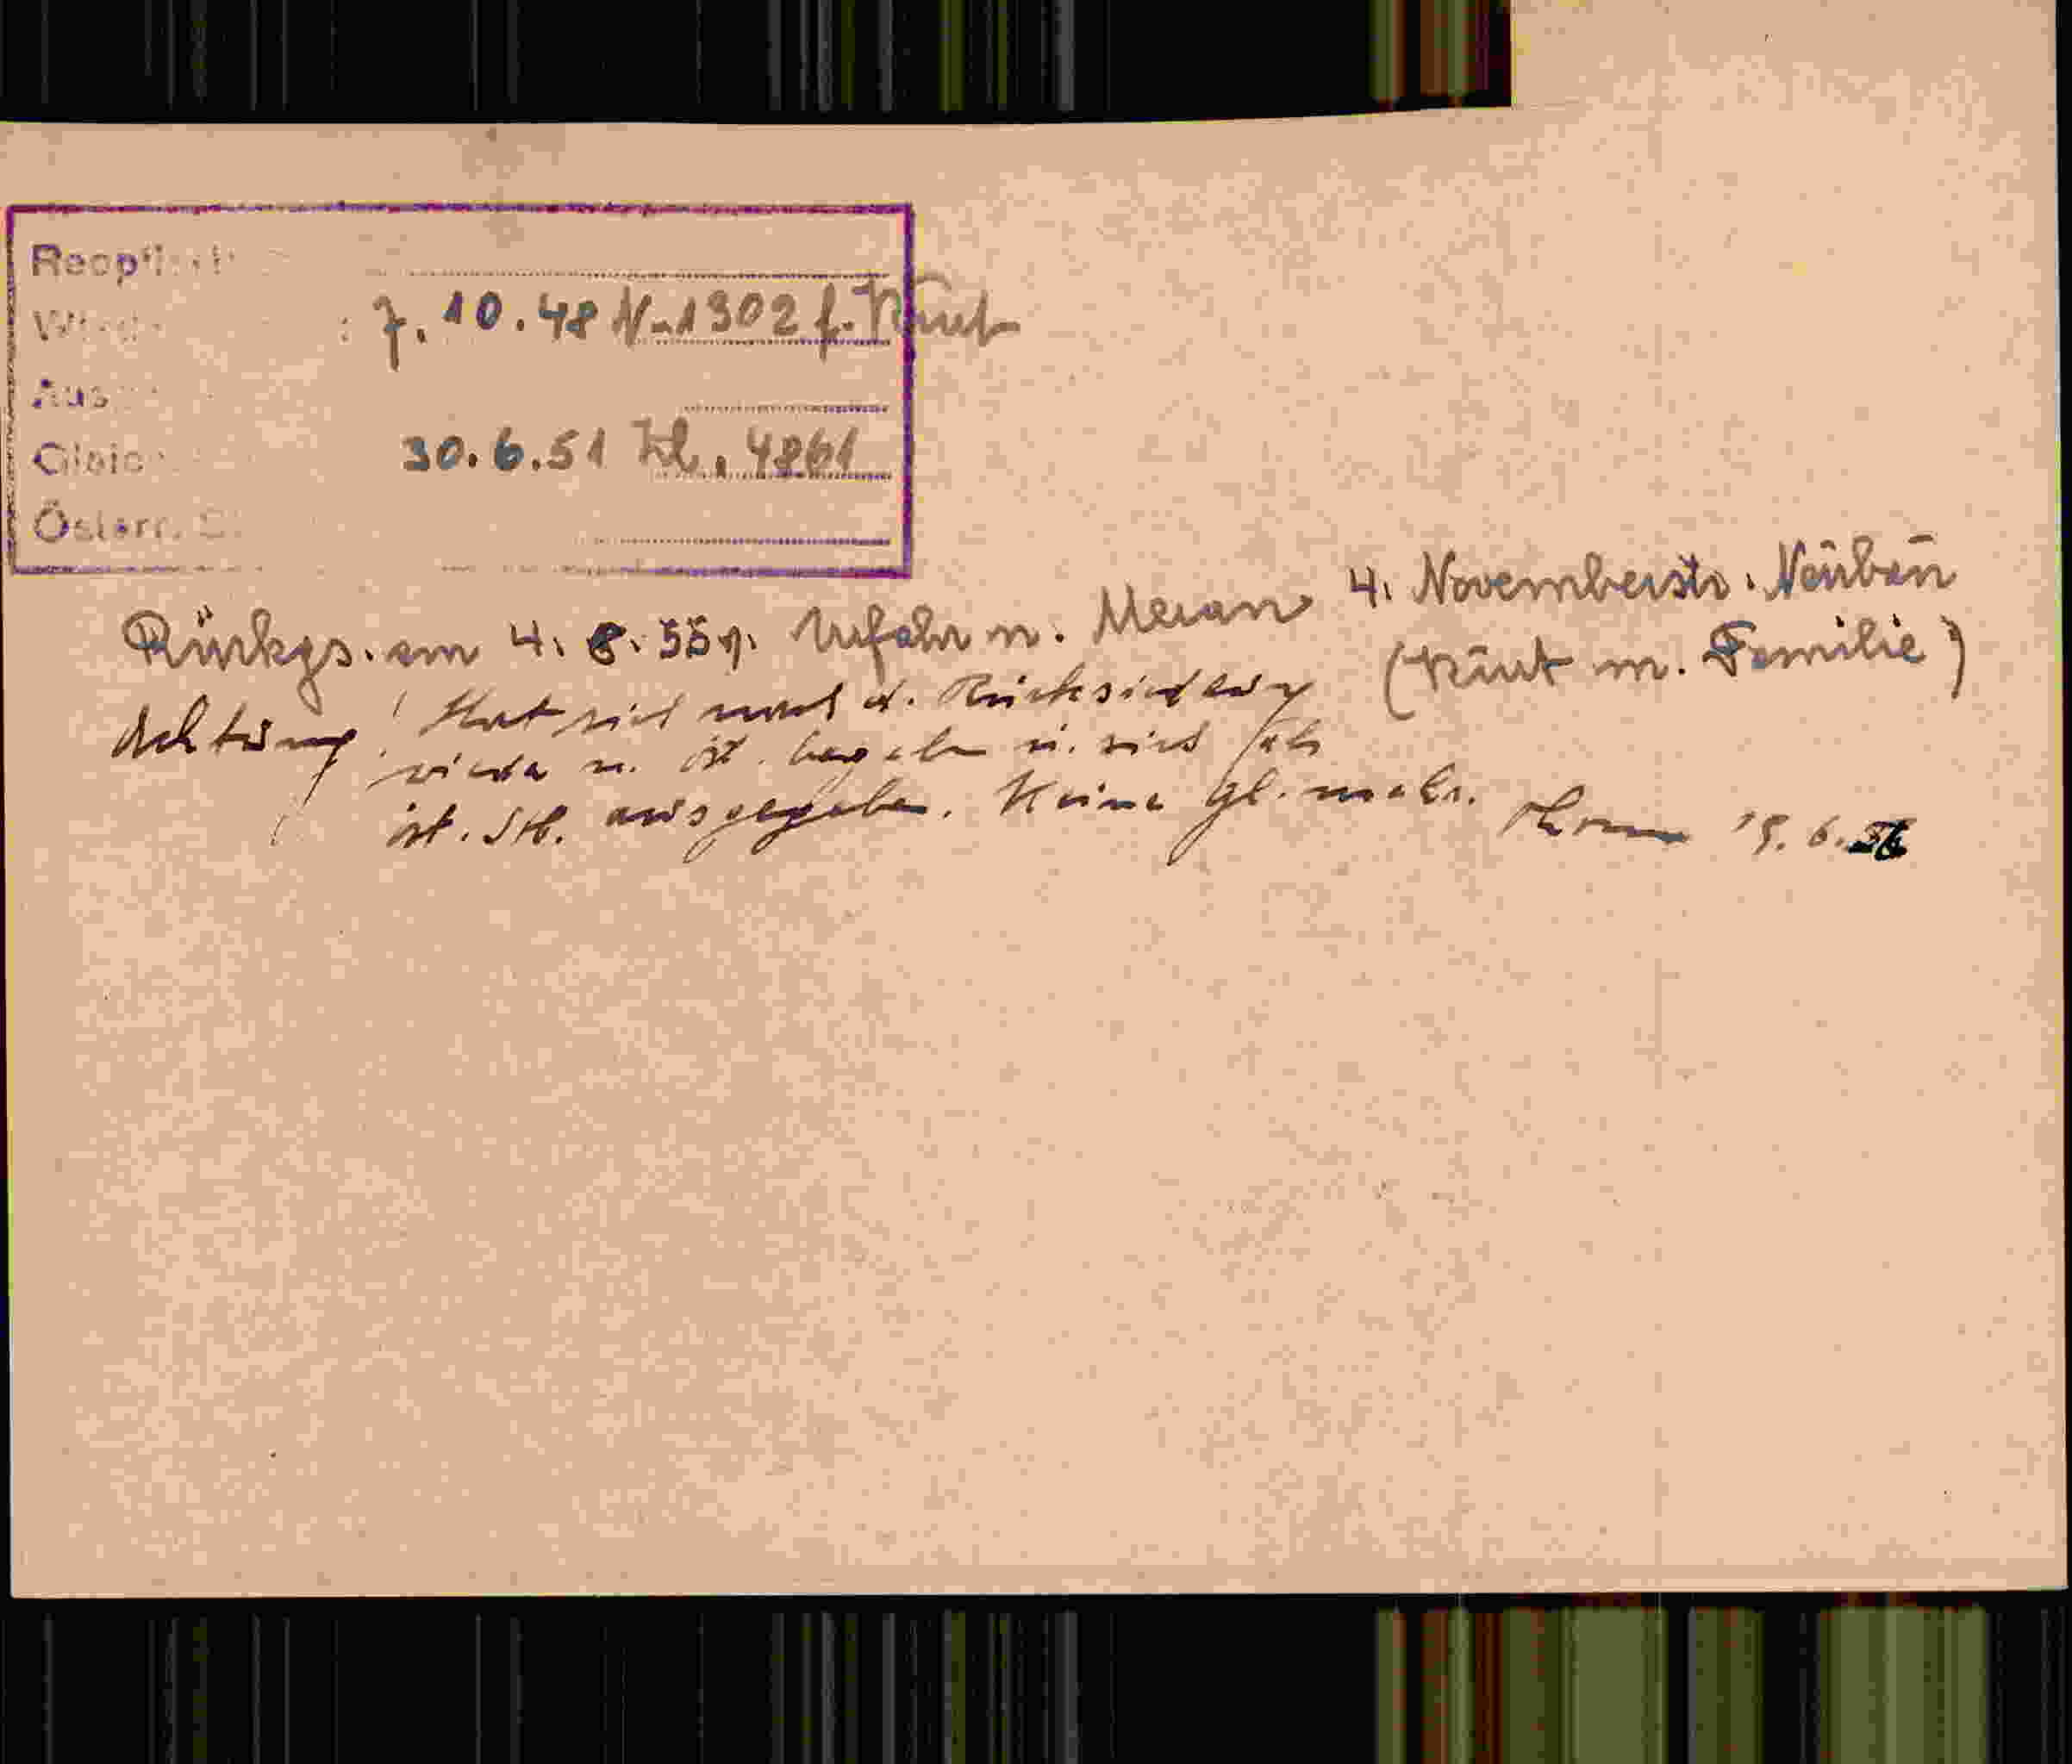 Reopti
: 7.10.48 N-1302 f. Knut
Aus
Gleic 30.6.51 Zl. 4861
Österr. S
Rückgs. am 4. 8. 55 v. Urfahr n. Meran 4. Novemberstr. Neubau
(Knut m. Familie)
Achtung! Hat sich nach d. Rücksiedlung
wieder n. Öst. begeben u. sich als
öst. Stb. ausgegeben. Keine Gl. mehr. 19. 6. 56